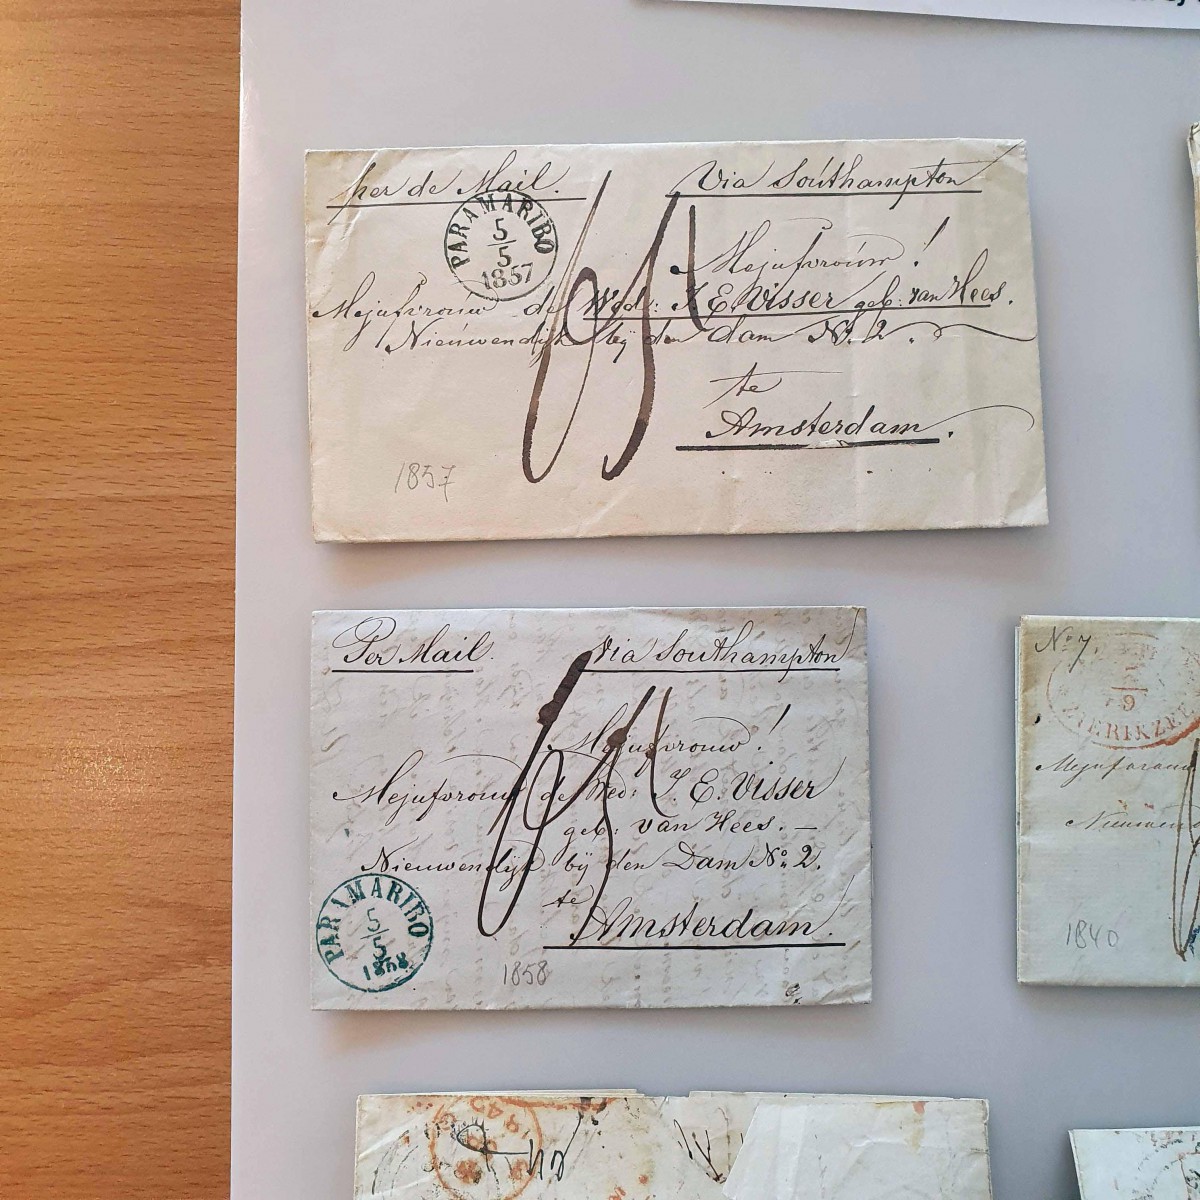 per de Mail. Via Southampton
PARAMARIBO
5
5
1857
Mejufvrouw!
Mejufvrouw de Wed: J. E. Visser geb: van Hees.
Nieuwendijk bij den Dam No. 2.
te
Amsterdam.
1857
Per Mail. Via Southampton
Mejufvrouw!
Mejufvrouw de Wed: J. E. Visser
geb: van Hees. —
Nieuwendijk bij den Dam No. 2.
te
Amsterdam.
PARAMARIBO
5
5
1858
1858
No 7.
9
ZIERIKZEE
Mejufvrouw
1840